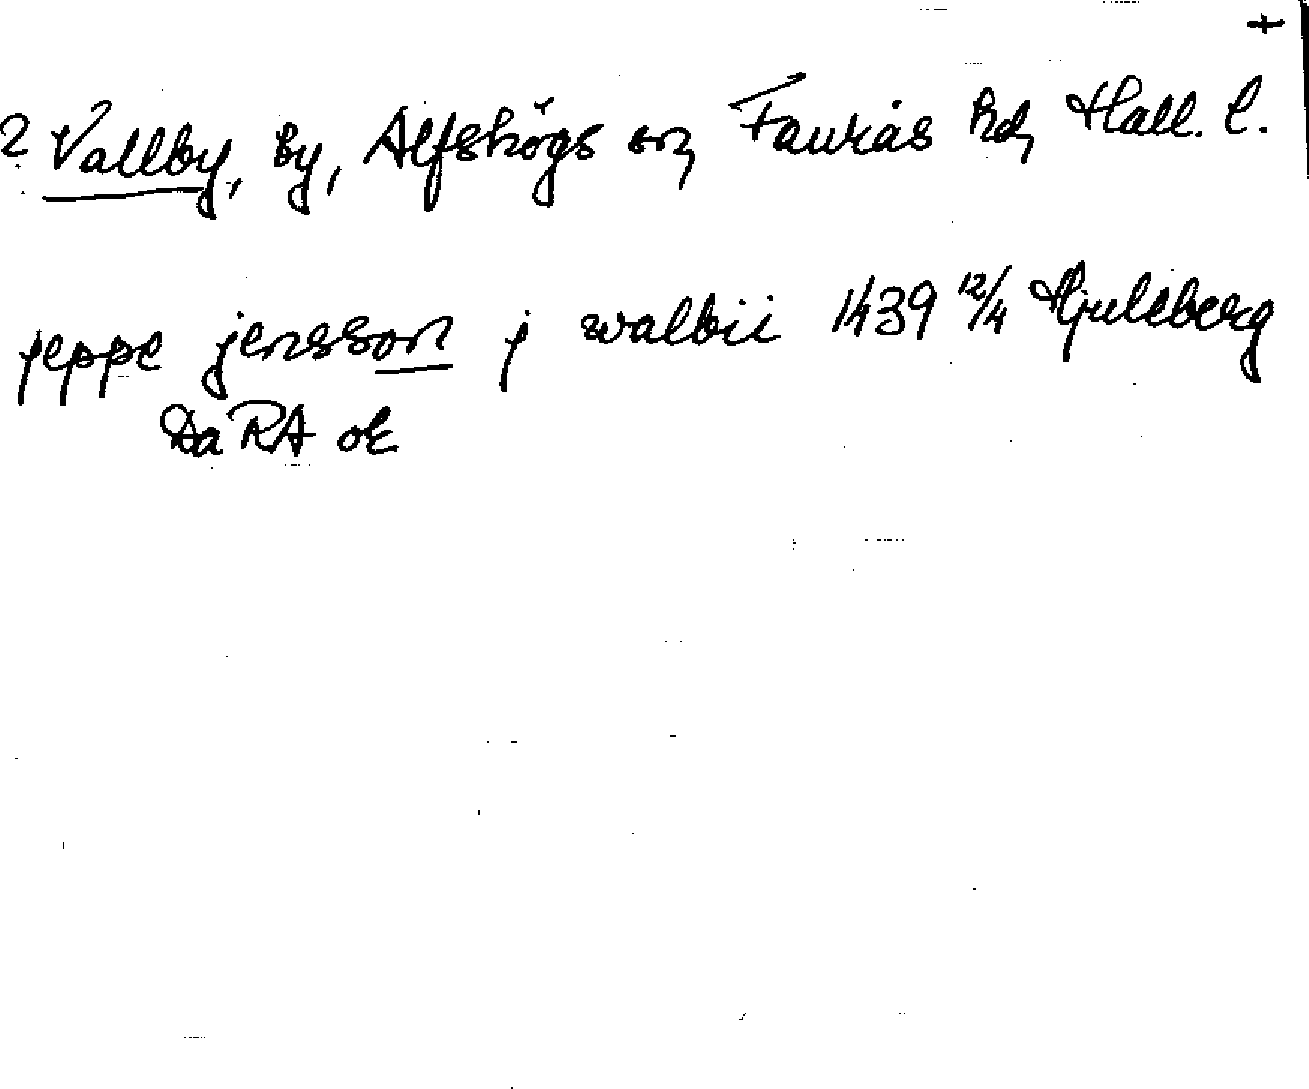 +
? Vallby, by, Alfshögs sn, Faurås hd, Hall. l.
jeppe jensson j walbii 1439 12/4 Hjuleberg
DaRA oE